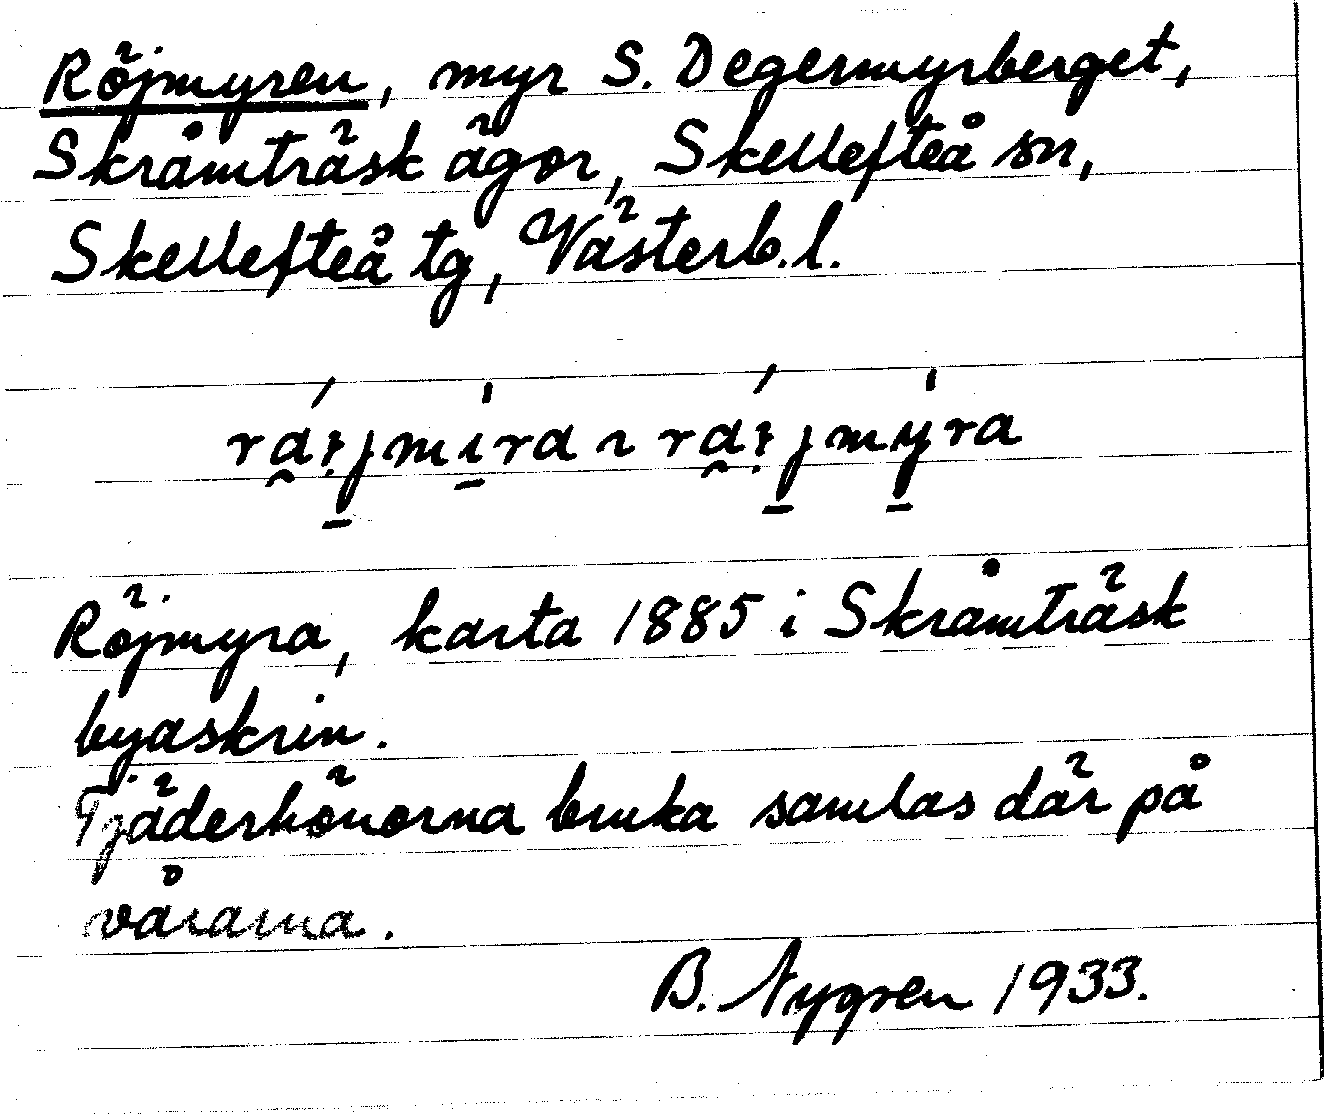 Röjmyren, myr S. Degermyrberget,
Skråmträsk ägor, Skellefteå sn,
Skellefteå tg, Västerb. l.
Röjmyra, karta 1885 i Skråmträsk
byaskrin.
Tjäderhönorna bruka samlas där på
vårarna.
B. Nygren 1933.